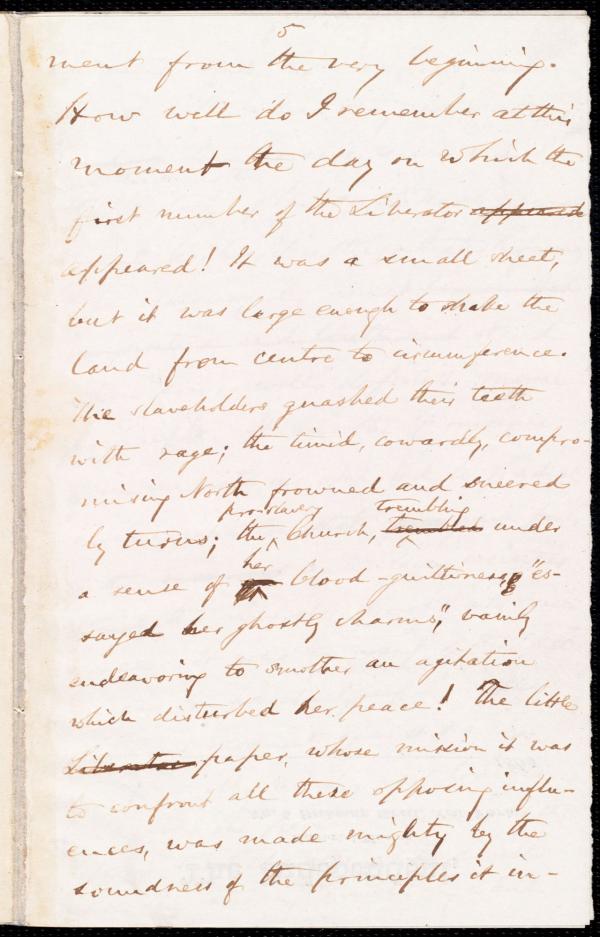 5
ment from the very beginning.
How well do I remember at this
moment the day on which the
first number of the Liberator appeared
appeared! It was a small sheet,
but it was large enough to shake the
land from centre to circumference.
The slaveholders gnashed their teeth
with rage; the timid, cowardly, compro-
mising North frowned and sneered
pro-slavery trembling
by turns; the Church, trembled under
her
a sense of blood-guiltiness, "es-
sayed her ghostly charms," vainly
endeavoring to smother an agitation
which disturbed her peace! The little
Liberator paper, whose mission it was
to confront all these opposing influ-
ences, was made mighty by the
soundness of the principles it in-